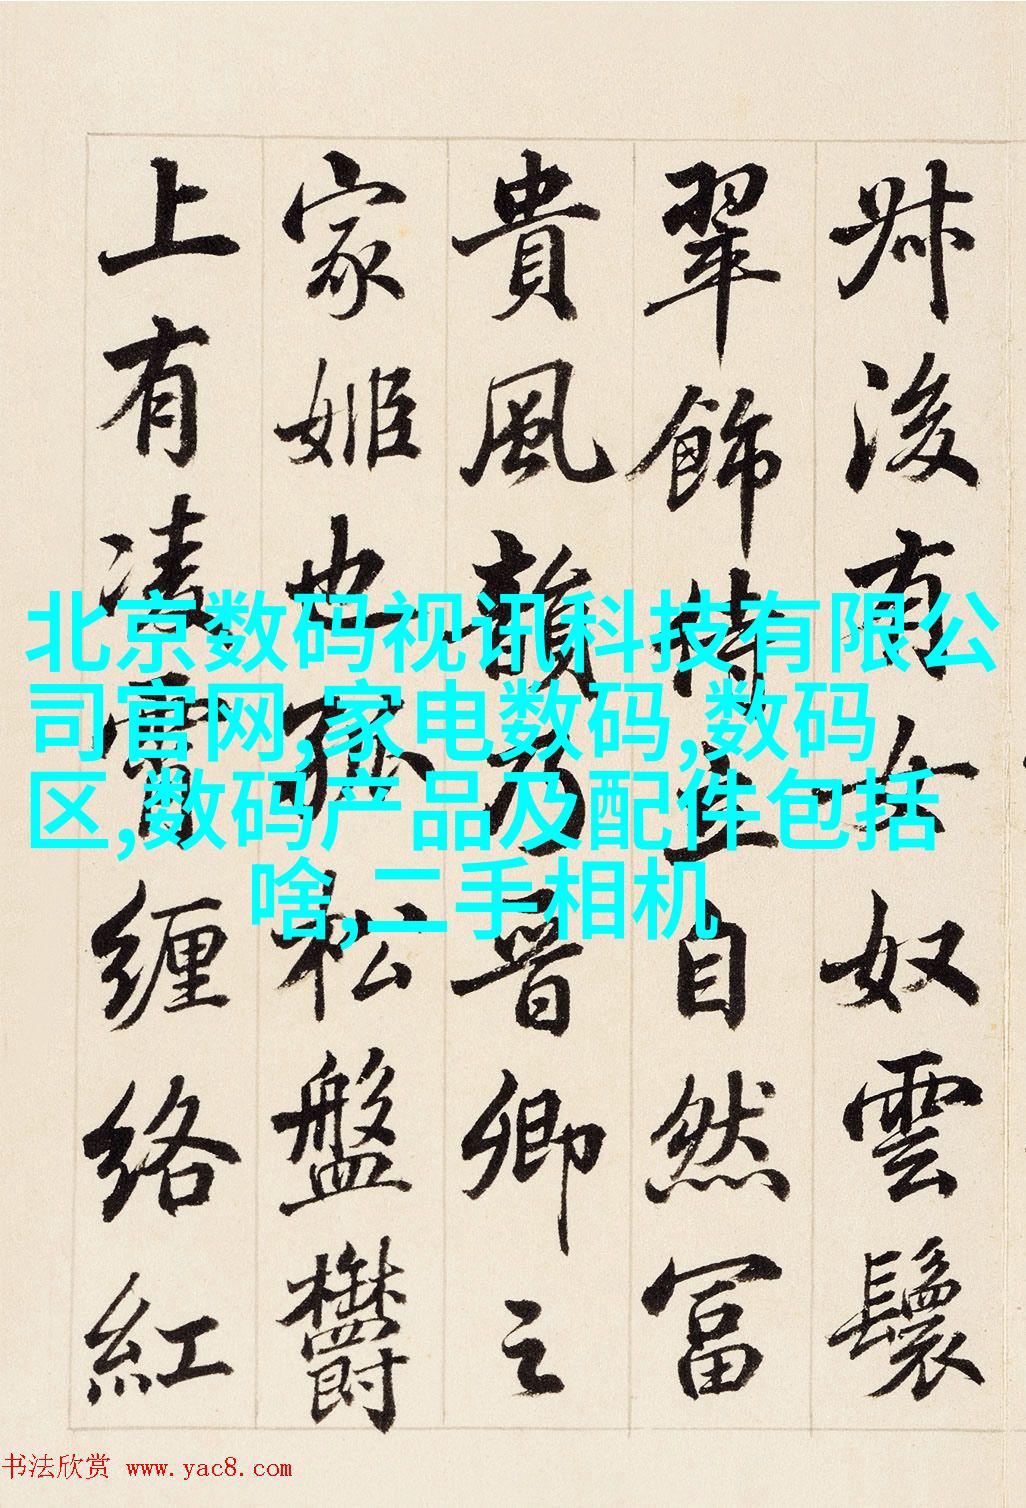 叔後有女奴雲鬟
翠飾侍立自然富
貴風韻乃晉卿之
家姬也孤松盤鬱
上有凌霄纏絡紅
北京数码视讯科技有限公
司官网,家电数码,数码
区,数码产品及配件包括
啥,二手相机
书法欣赏 www.yac8.com